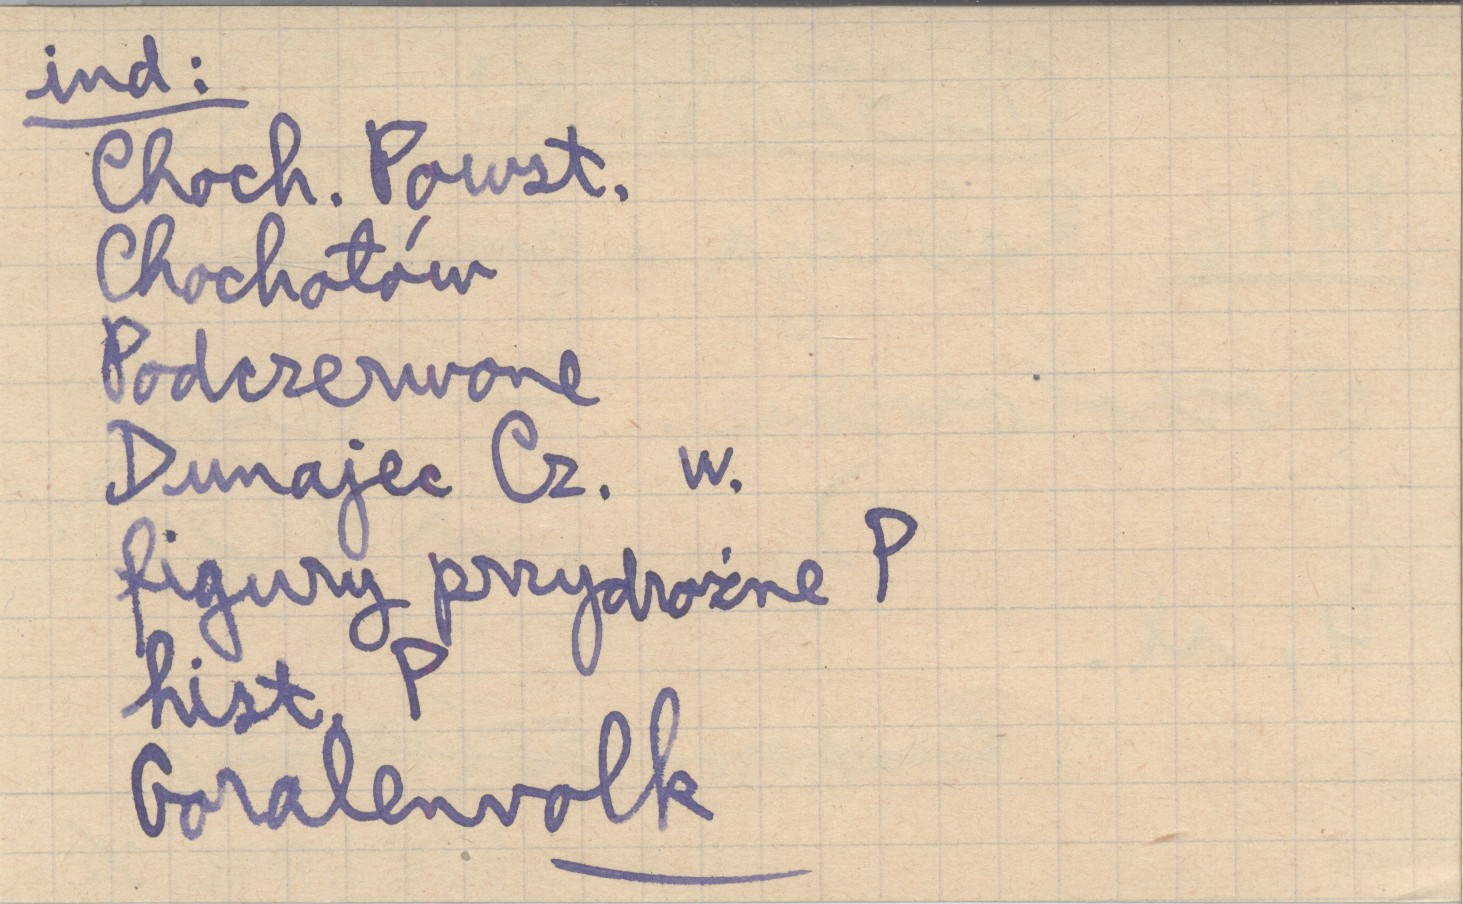 ind:
Choch. Powst.
Chochołów
Podczerwone
Dunajec Cz. w.
figury przydrożne P
hist. P
Goralenvolk